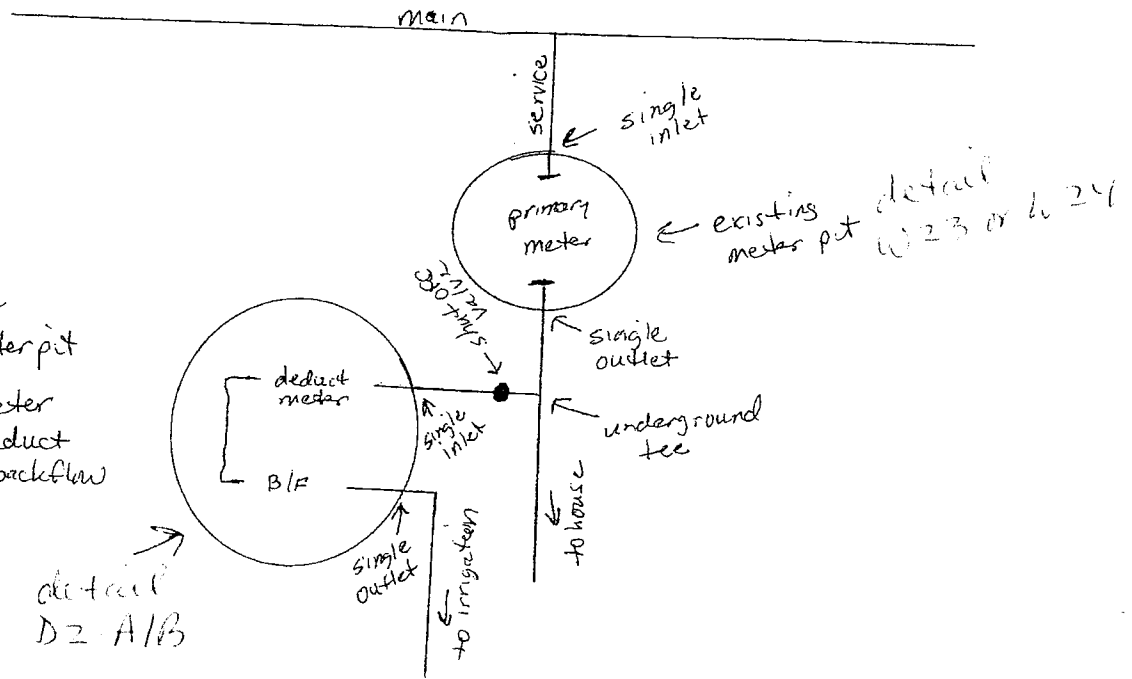 main
service
single
inlet
primary
meter
existing
meter pit
detail
W23 or W24
shut off
valve
single
outlet
ter pit
eter
duct
backflow
deduct
meter
single
inlet
underground
tee
B/F
single
outlet
to irrigation
to house
detail
D2 A/B